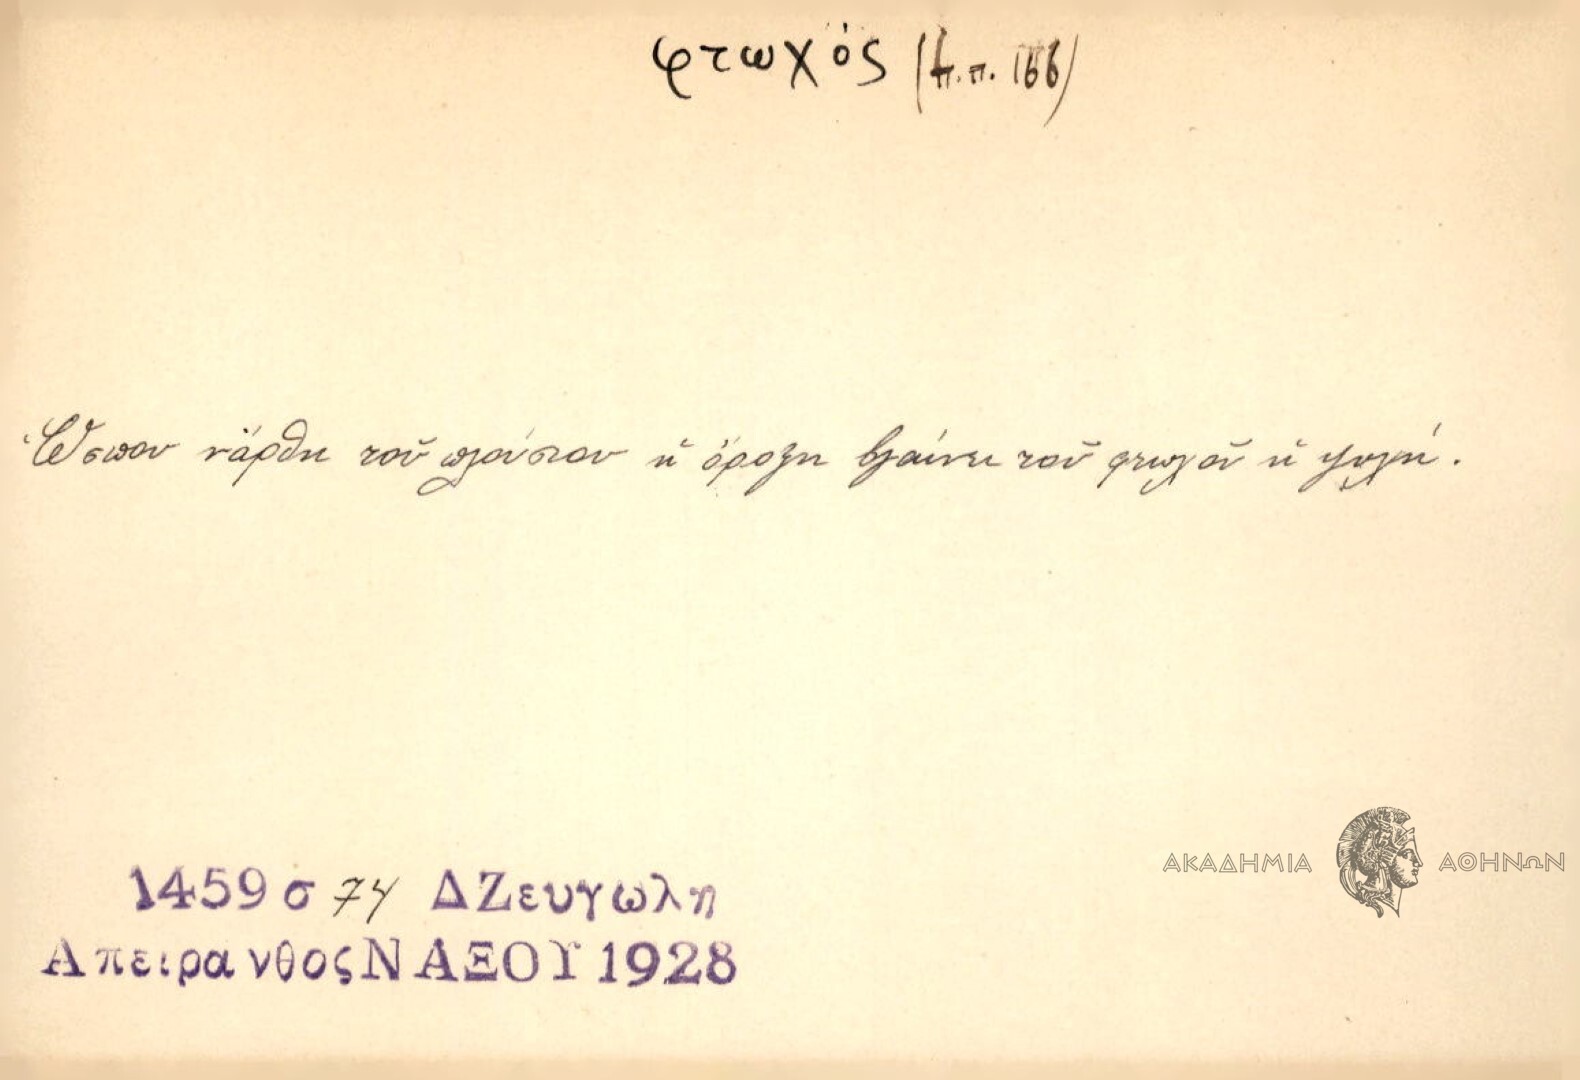 φτωχός (π.π. 166)
Ὥσπου νἄρθη τοῦ πλούσιου ἡ ὄρεξη βγαίνει τοῦ φτωχοῦ ἡ ψυχή.
ΑΚΑΔΗΜΙΑ ΑΘΗΝΩΝ
1459 σ 74 Δ Ζευγωλη
Απειρανθος ΝΑΞΟΥ 1928